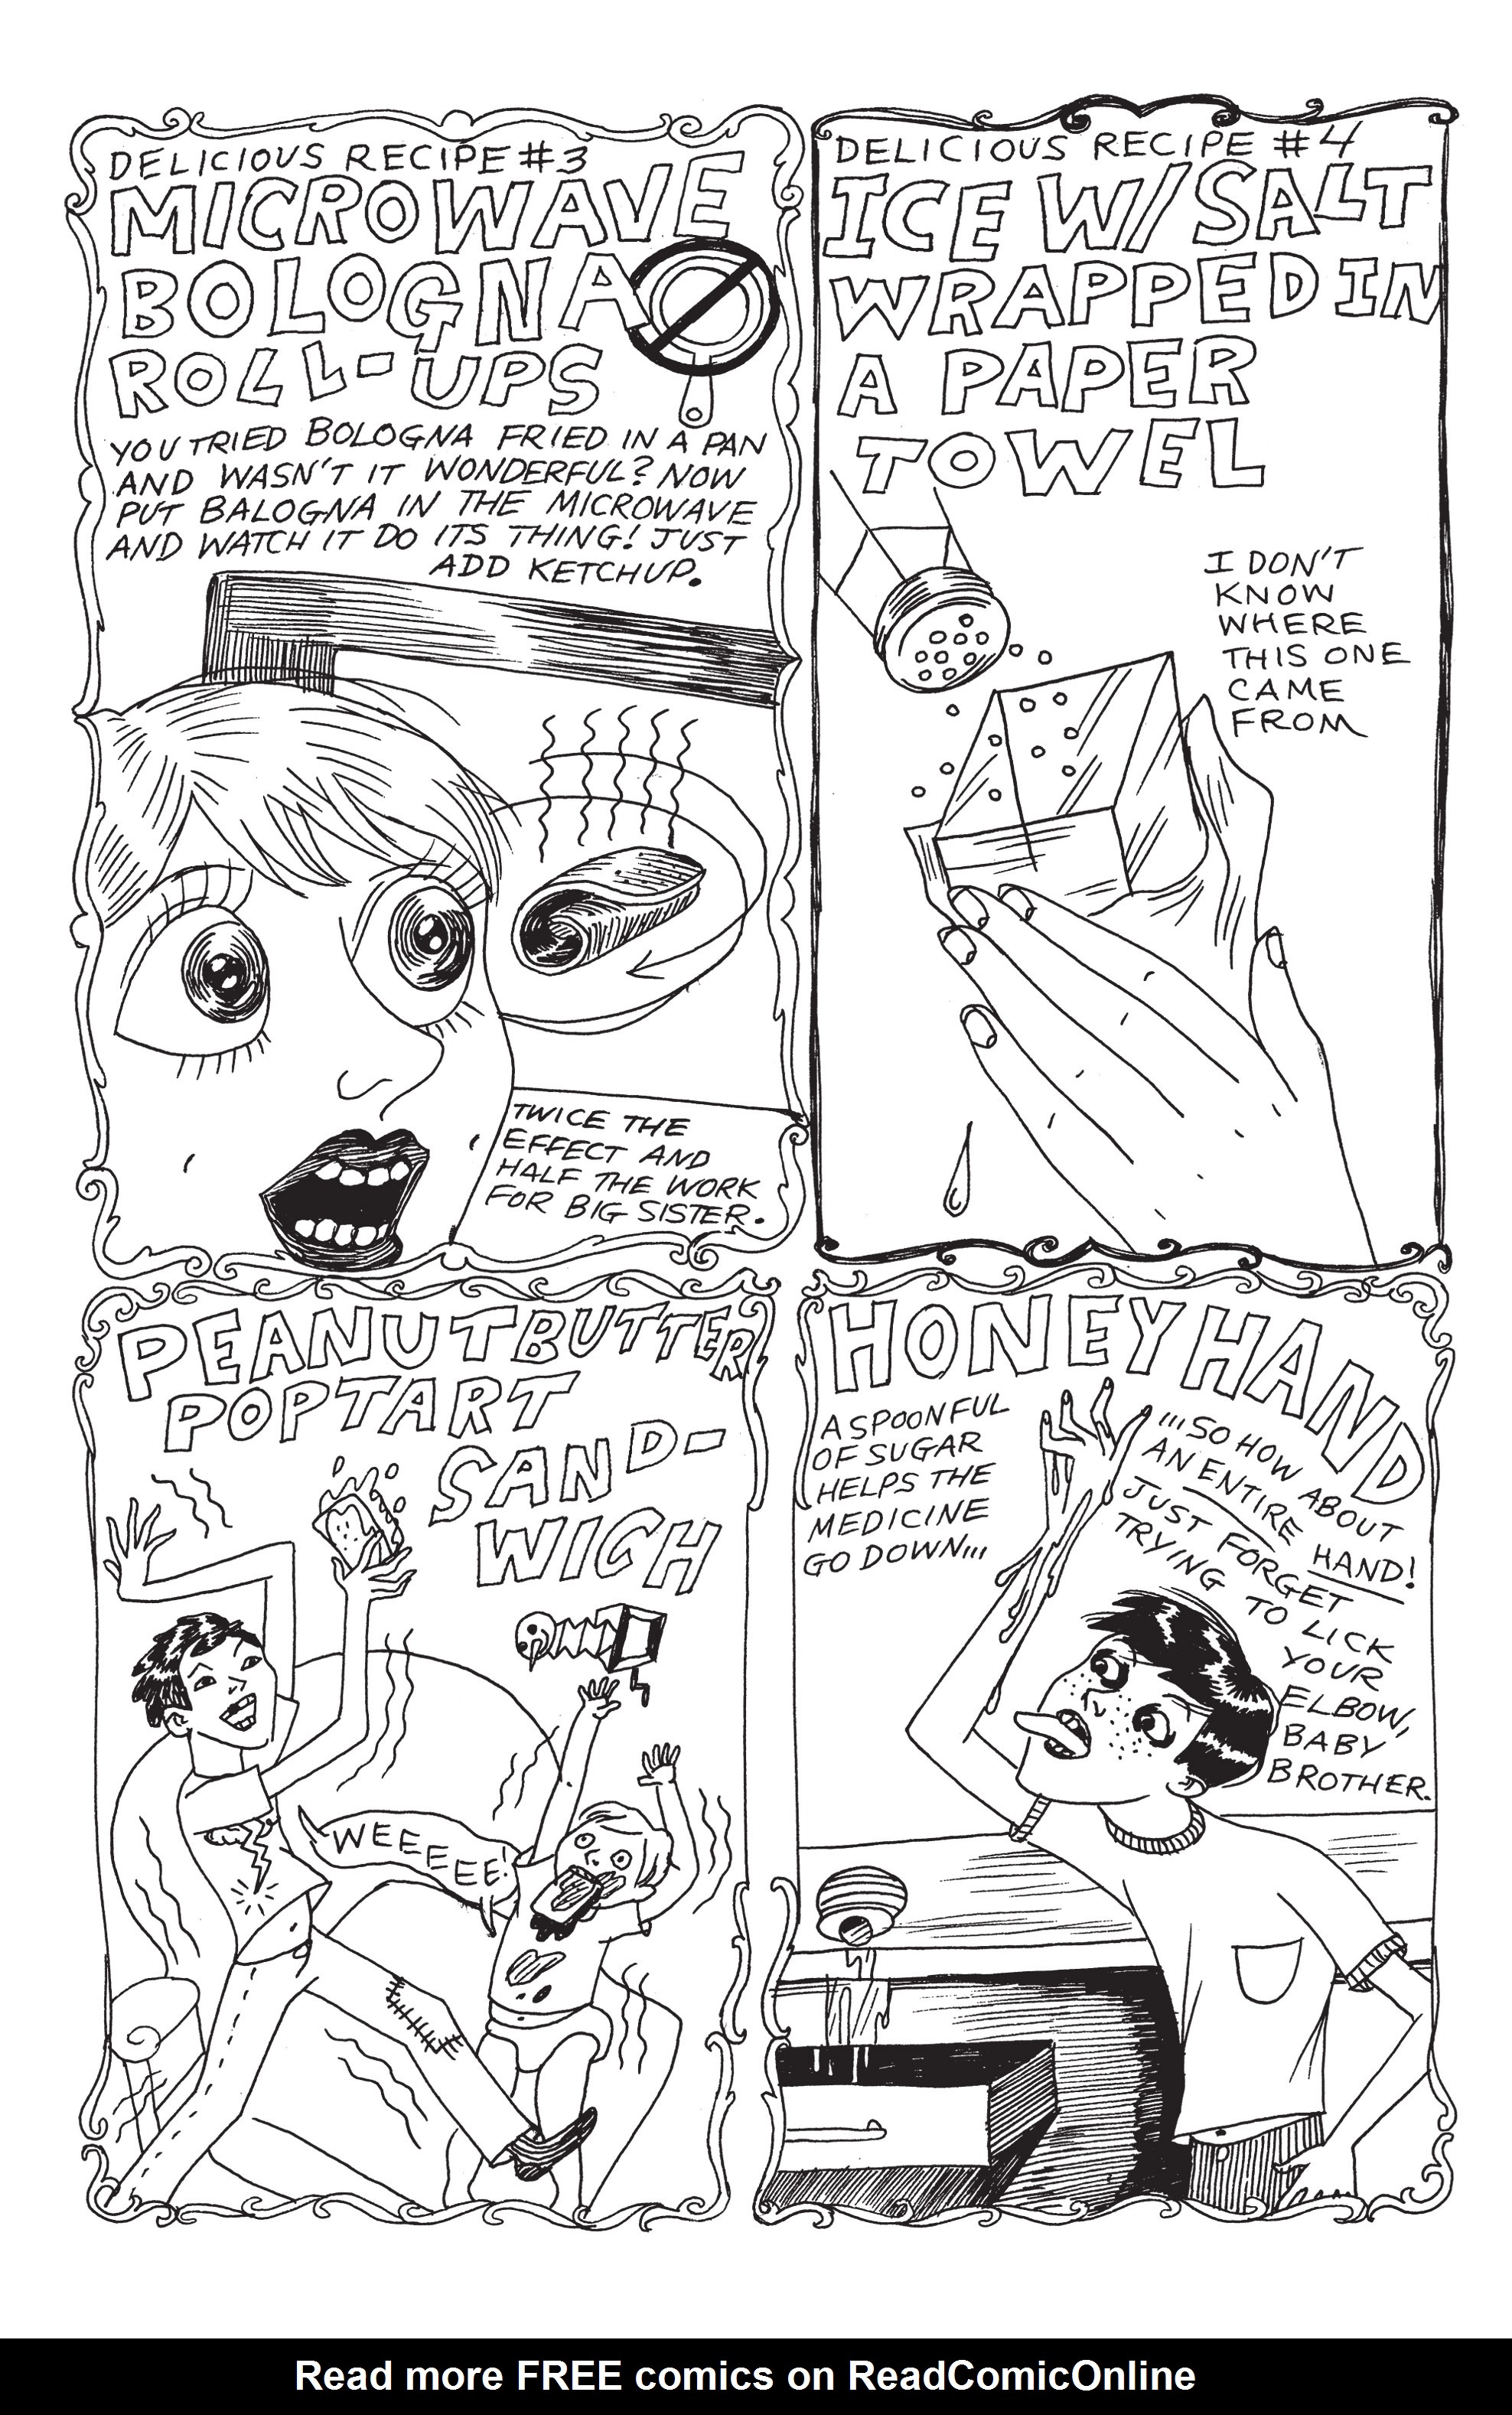 DELICIOUS RECIPE #3
MICROWAVE
BOLOGNA
ROLL-UPS
YOU TRIED BOLOGNA FRIED IN A PAN
AND WASN'T IT WONDERFUL? NOW
PUT BALOGNA IN THE MICROWAVE
AND WATCH IT DO ITS THING! JUST
ADD KETCHUP.
TWICE THE
EFFECT AND
HALF THE WORK
FOR BIG SISTER.
DELICIOUS RECIPE #4
ICE W/ SALT
WRAPPED IN
A PAPER
TOWEL
I DON'T
KNOW
WHERE
THIS ONE
CAME
FROM
PEANUTBUTTER
POPTART
SAND-
WICH
WEEEEE!
HONEY HAND
A SPOONFUL
OF SUGAR
HELPS THE
MEDICINE
GO DOWN...
...SO HOW ABOUT
AN ENTIRE HAND!
JUST FORGET
TRYING TO LICK
YOUR
ELBOW,
BABY
BROTHER.
Read more FREE comics on ReadComicOnline